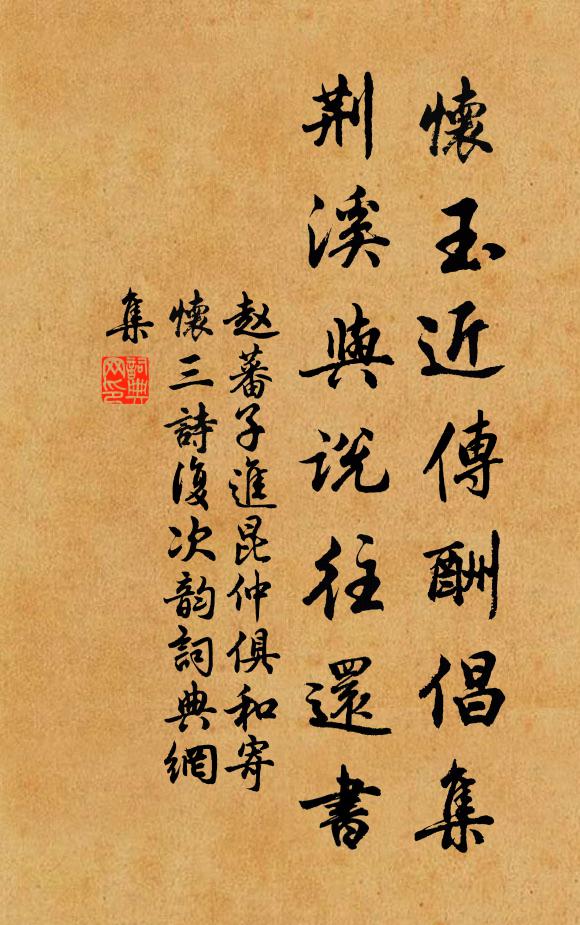 懷玉近傳酬倡集
荆溪與說往還書
赵蕃子進昆仲俱和寄
懷三詩復次韵詞典網
集
詞典網印